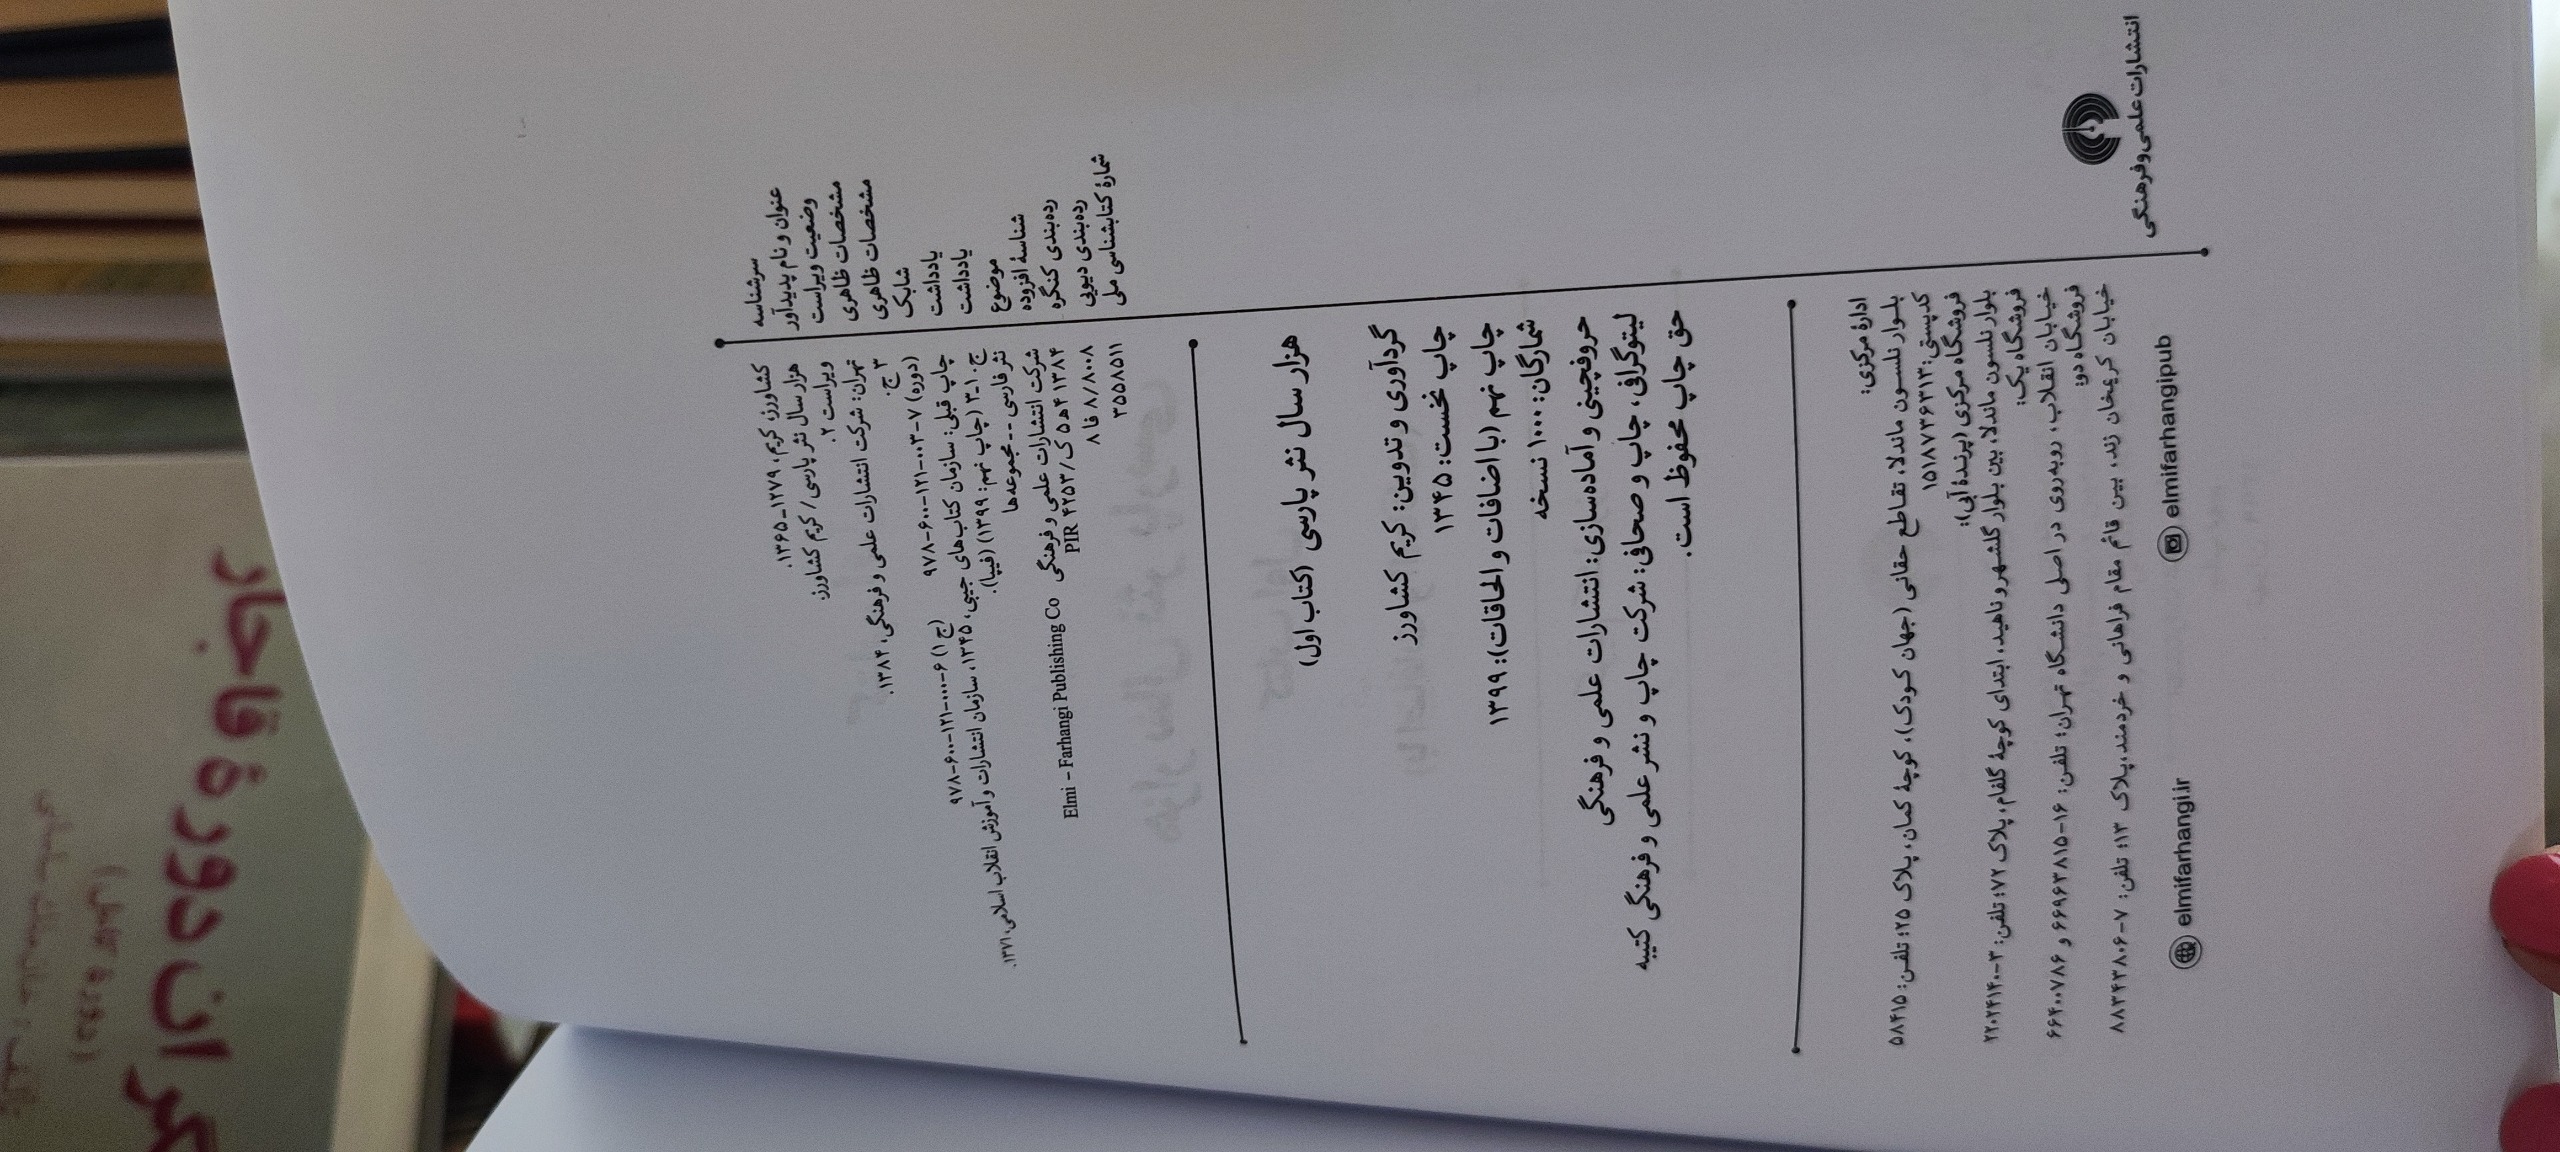 سرشناسه کشاورز، کریم، ۱۲۷۹-۱۳۶۵.
عنوان و نام پدیدآور هزار سال نثر پارسی/ کریم کشاورز.
وضعیت ویراست ویراست ۲.
مشخصات ظاهری تهران: شرکت انتشارات علمی و فرهنگی، ۱۳۸۴.
مشخصات ظاهری ۳ ج.
شابک (دوره) ۷-۰۰۳-۱۲۱-۶۰۰-۹۷۸ (ج ۱) ۶-۰۰۰-۱۲۱-۶۰۰-۹۷۸
یادداشت چاپ قبلی: سازمان کتاب‌های جیبی، ۱۳۴۵، سازمان انتشارات و آموزش انقلاب اسلامی، ۱۳۷۱.
یادداشت ج. ۱-۳ (چاپ نهم: ۱۳۹۹) (فیپا).
موضوع نثر فارسی -- مجموعه‌ها
شناسهٔ افزوده شرکت انتشارات علمی و فرهنگی Elmi - Farhangi Publishing Co
رده‌بندی کنگره PIR ۴۲۵۳/ک ۵ ه ۴ ۱۳۸۴
رده‌بندی دیویی ۸/۸۰۰۸ فا ۸
شمارهٔ کتابشناسی ملی ۳۵۵۸۵۱۱
هزار سال نثر پارسی (کتاب اول)
گردآوری و تدوین: کریم کشاورز
چاپ نخست: ۱۳۴۵
چاپ نهم (با اضافات و الحاقات): ۱۳۹۹
شمارگان: ۱۰۰۰ نسخه
حروفچینی و آماده‌سازی: انتشارات علمی و فرهنگی
لیتوگرافی، چاپ و صحافی: شرکت چاپ و نشر علمی و فرهنگی کتیبه
حق چاپ محفوظ است.
ادارهٔ مرکزی:
بلوار نلسون ماندلا، تقاطع حقانی (جهان کودک)، کوچهٔ کمان، پلاک ۲۵؛ تلفن: ۵۸۴۱۵
کدپستی: ۱۵۱۸۷۳۶۳۱۳
فروشگاه مرکزی (پرندهٔ آبی):
بلوار نلسون ماندلا، بین بلوار گلشهر و ناهید، ابتدای کوچهٔ گلفام، پلاک ۷۲؛ تلفن: ۳-۲۲۰۲۴۱۴۰
فروشگاه یک:
خیابان انقلاب، روبه‌روی در اصلی دانشگاه تهران؛ تلفن: ۱۶-۶۶۹۶۳۸۱۵ و ۶۶۴۰۰۷۸۶
فروشگاه دو:
خیابان کریمخان زند، بین قائم مقام فراهانی و خردمند، پلاک ۱۳؛ تلفن: ۷-۸۸۳۴۳۸۰۶
انتشارات علمی و فرهنگی
elmifarhangipub
elmifarhangi.ir
دورهٔ قاجار